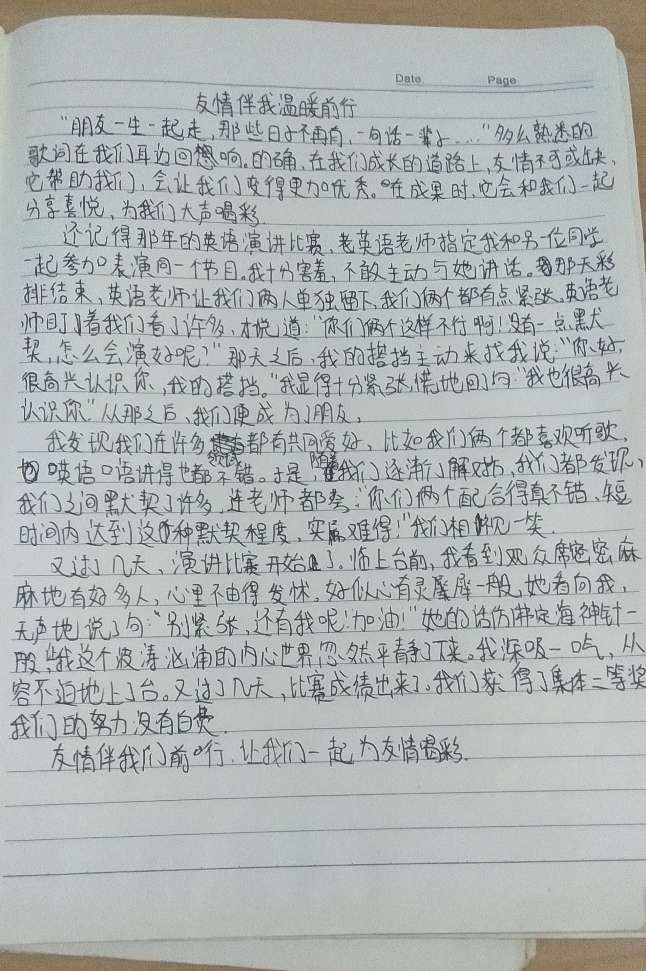 Date Page
友情伴我温暖前行
“朋友一生一起走,那些日子不再有,一句话一辈子……”多么熟悉的
歌词在我们耳边回想响。的确,在我们成长的道路上,友情不可或缺,
它帮助我们,会让我们变得更加优秀。在成果时,它会和我们一起
分享喜悦,为我们大声喝彩.
还记得那年的英语演讲比赛,老英语老师指定我和另一位同学
一起参加表演同一个节目。我十分害羞,不敢主动与她讲话。那天彩
排结束,英语老师让我们两人单独留下,我们俩个都有点紧张,英语老
师盯着我们看了许多,才说道:“你们俩个这样不行啊!没有一点默
契,怎么会演好呢?”那天之后,我的搭挡主动来找我说:“你好,
很高兴认识你,我的搭挡。”我显得十分紧张,慌地回了句:“我也很高兴
认识你”从那之后,我们便成为了朋友,
我发现我们在许多都有共同爱好,比如我们俩个都喜欢听歌,
英语口语讲得也都不错。于是,随着我们逐渐了解对方,我们都发现,
我们之间默契了许多,连老师都夸:“你们俩个配合得真不错,短
时间内达到这种默契程度,实属难得!”我们相视一笑.
又过了几天,演讲比赛开始了。临上台前,我看到观众席密密麻
麻地有好多人,心里不由得发怵。好似心有灵犀一般,她看向我,
无声地说了句:“别紧张,还有我呢!加油!”她的话仿佛定海神针一
般,我这个波涛汹涌的内心世界忽然平静了下来。我深吸一口气,从
容不迫地上了台。又过了几天,比赛成绩出来了。我们获得了集体二等奖
我们的努力没有白费.
友情伴我们前行,让我们一起为友情喝彩.